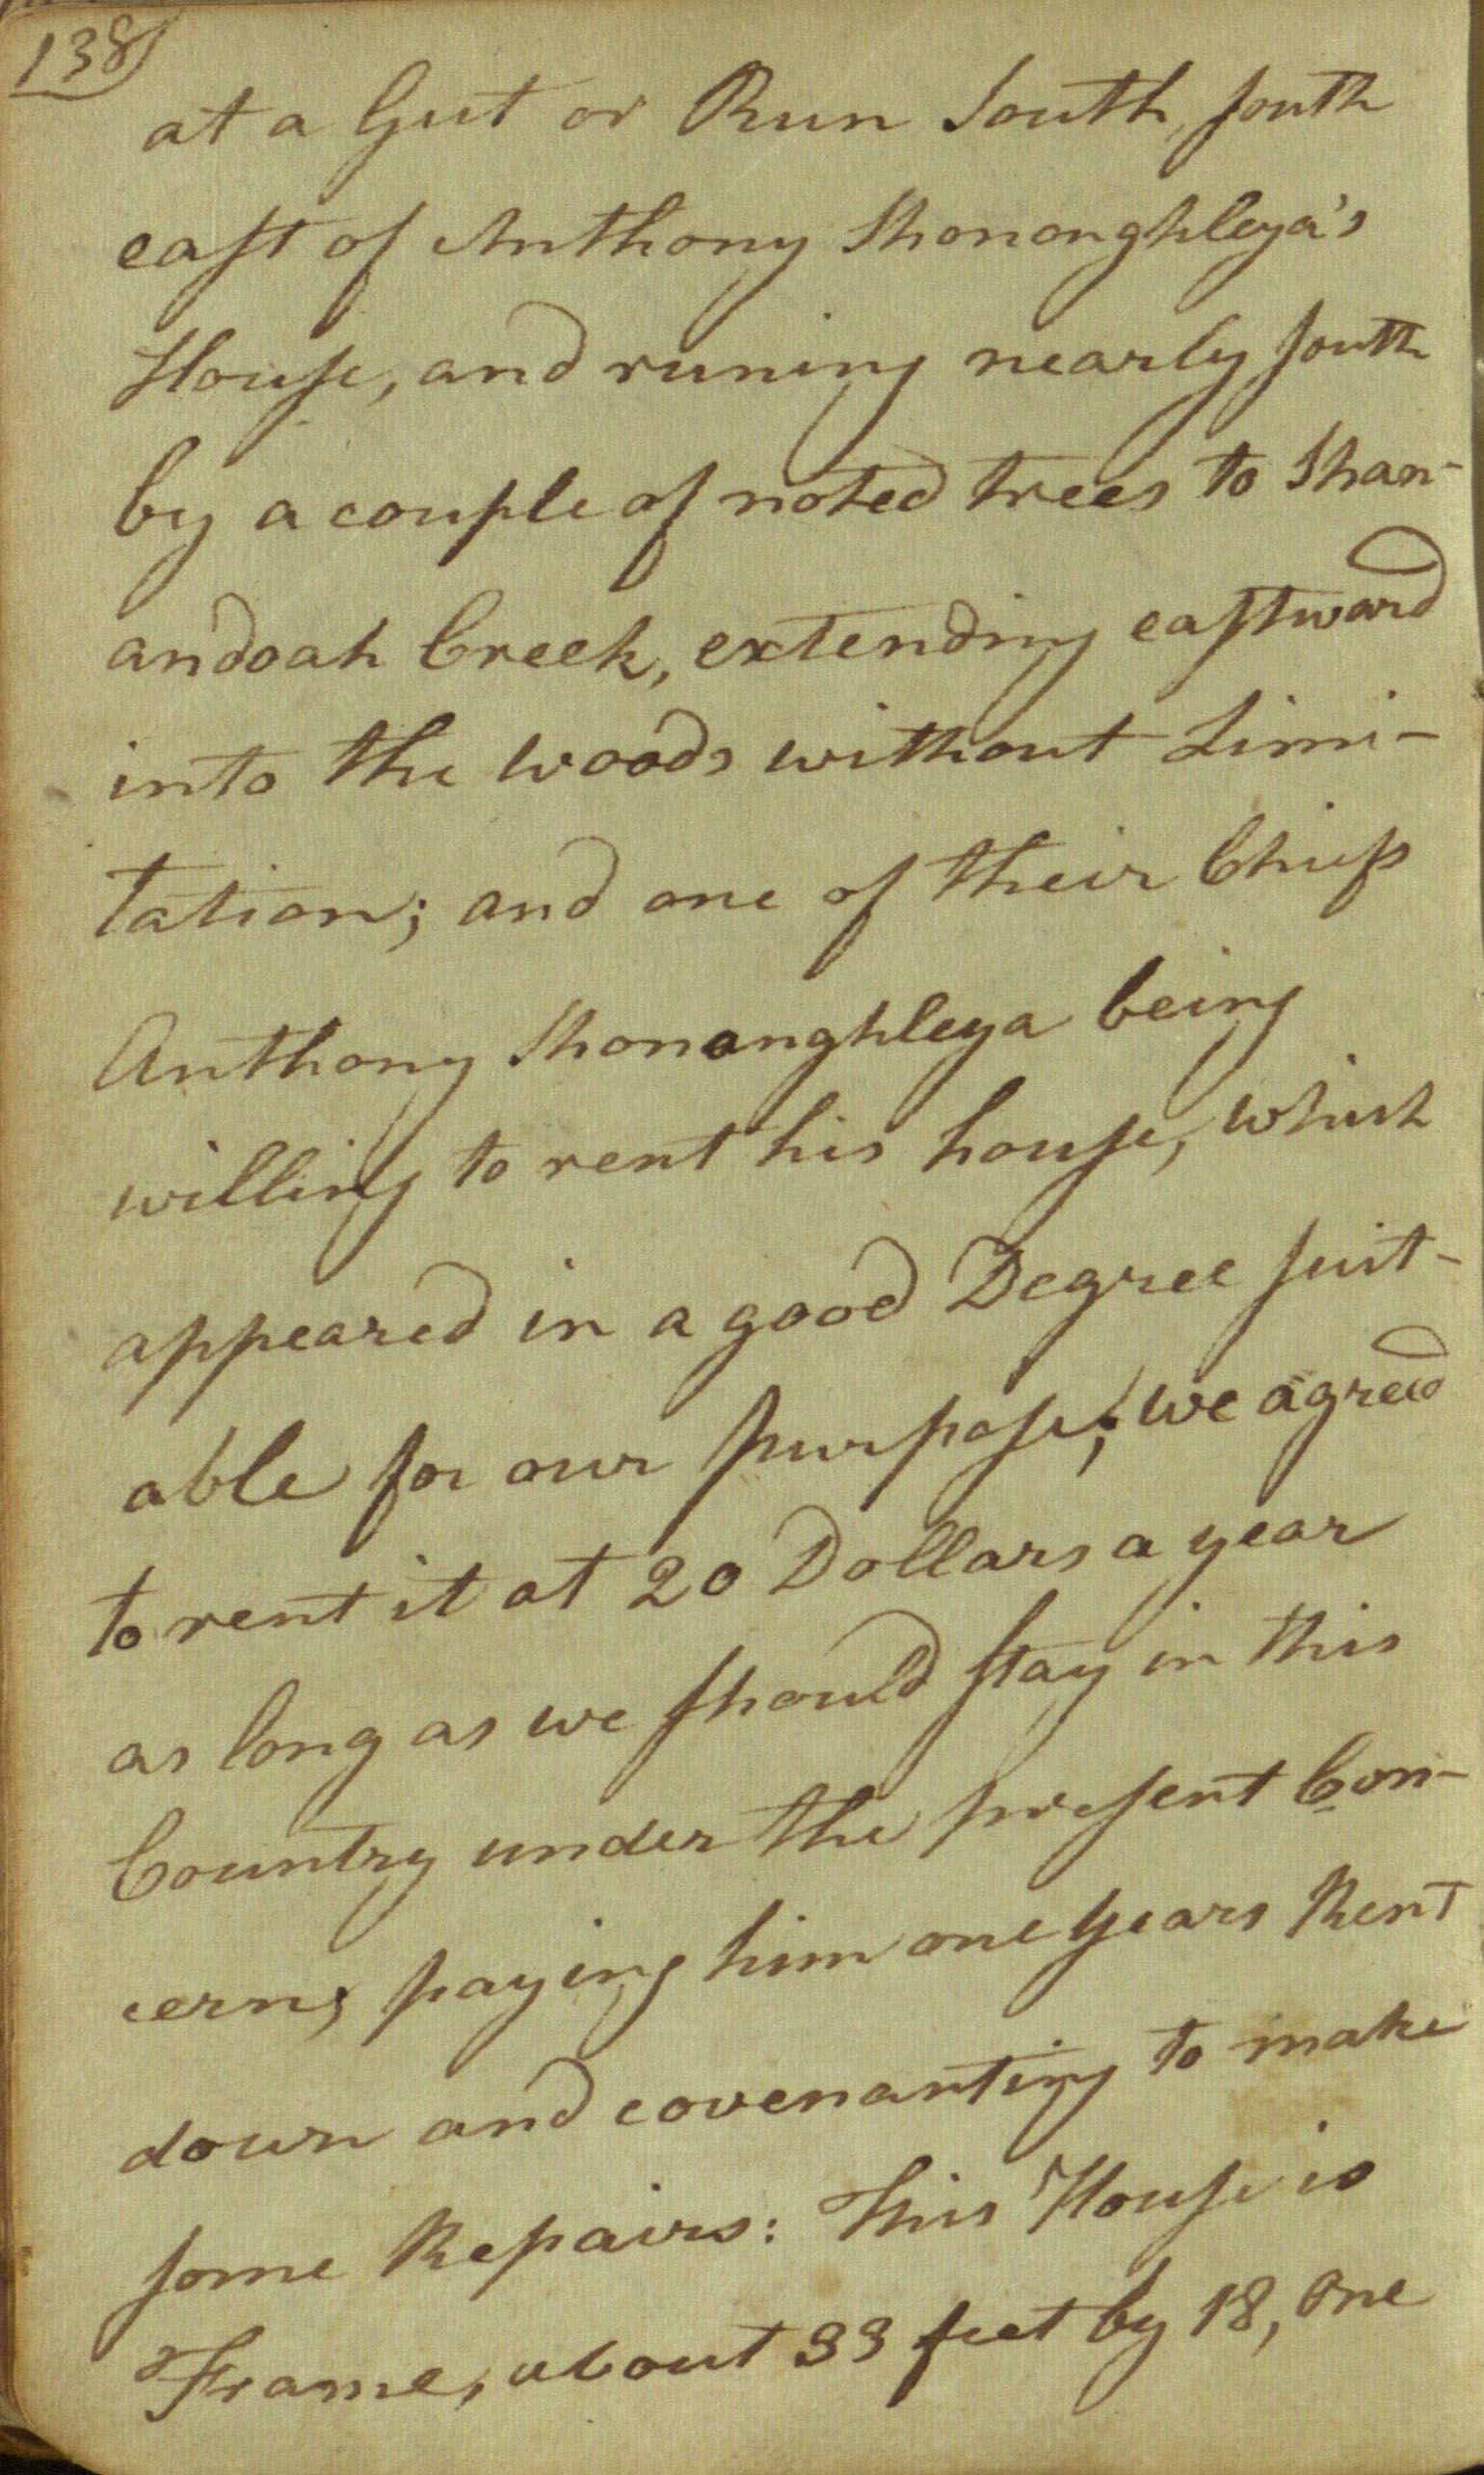 138
at a Gut or Run South, south
east of Anthony Shononghleya's
House, and runing nearly south
by a couple of noted trees to Shan-
andoah Creek, extending eastward
into the woods without Limi-
tation; and one of their Chiefs
Anthony Shononghleya being
willing to rent his house, which
appeared in a good Degree suit-
able for our purpose; we agreed
to rent it at 20 Dollars a year
as long as we should stay in this
Country under the present Con-
cern; paying him one years Rent
down and covenanting to make
some Repairs: This House is
Frame, about 33 feet by 18, one